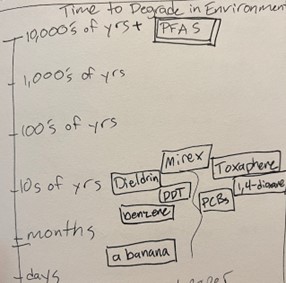 Time to Degrade in Environment
10,000's of yrs+ PFAS
1,000's of yrs
100's of yrs
Mirex
Toxaphene
10s of yrs Dieldrin
1,4-dioxane
DDT
PCBs
benzene
months
a banana
days